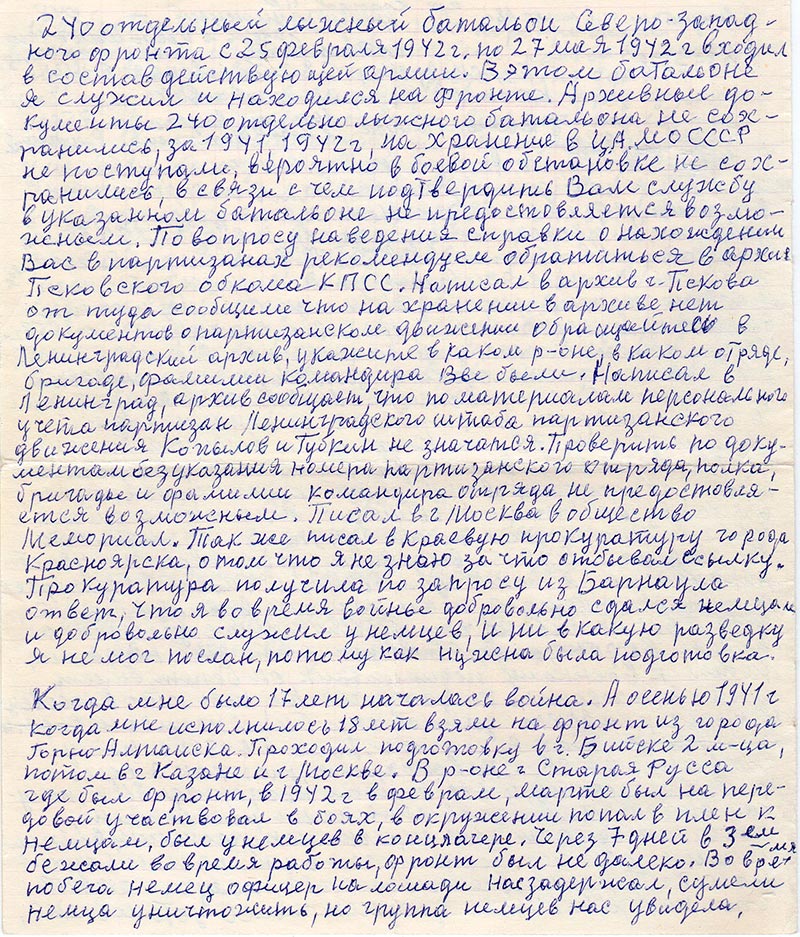 240 отдельный лыжный батальон Северо-запад-
ного фронта с 25 февраля 1942 г. по 27 мая 1942 г входил
в состав действующей армии. В этом батальоне
я служил и находился на фронте. Архивные до-
кументы 240 отдельно лыжного батальона не сох-
ранились, за 1941, 1942 г, на хранение в ЦА МО СССР
не поступали, вероятно в боевой обстановке не сох-
ранились, в связи с чем подтвердить Вам службу
в указанном батальоне не предоставляется возмо-
жным. По вопросу наведения справки о нахождении
Вас в партизанах рекомендуем обратиться в архив
Псковского обкома КПСС. Написал в архив г. Пскова
от туда сообщили что на хранении в архиве нет
документов о партизанском движении обращайтесь в
Ленинградский архив, укажите в каком р-оне, в каком отряде,
бригаде, фамилии командира Вы были. Написал в
Ленинград, архив сообщает что по материалам персонального
учета партизан Ленинградского штаба партизанского
движения Копылов и Губкин не значатся. Проверить по доку-
ментам без указания номера партизанского отряда, полка,
бригады и фамилии командира отряда, не предоставля-
ется возможным. Писал в г Москва в общество
Мемориал. Так же писал в Краевую прокуратуру города
Красноярска, о том что я не знаю за что отбывал ссылку.
Прокуратура получила по запросу из Барнаула
ответ, что я во время войны добровольно сдался немцам
и добровольно служил у немцев, и ни в какую разведку
я не мог послан, потому как нужна была подготовка.
Когда мне было 17 лет началась война. А осенью 1941 г
когда мне исполнилось 18 лет взяли на фронт из города
Горно-Алтайска. Проходил подготовку в г. Бийске 2 м-ца,
потом в г Казане и г Москве. В р-оне г Старая Русса
где был фронт, в 1942 г в феврале, марте был на пере-
довой участвовал в боях, в окружении попал в плен к
немцам, был у немцев в концлагере. Через 7 дней в 3 ем
бежали во время работы, фронт был не далеко. Во время
побега немец офицер на лошади нас задержал, сумели
немца уничтожить, но группа немцев нас увидела,